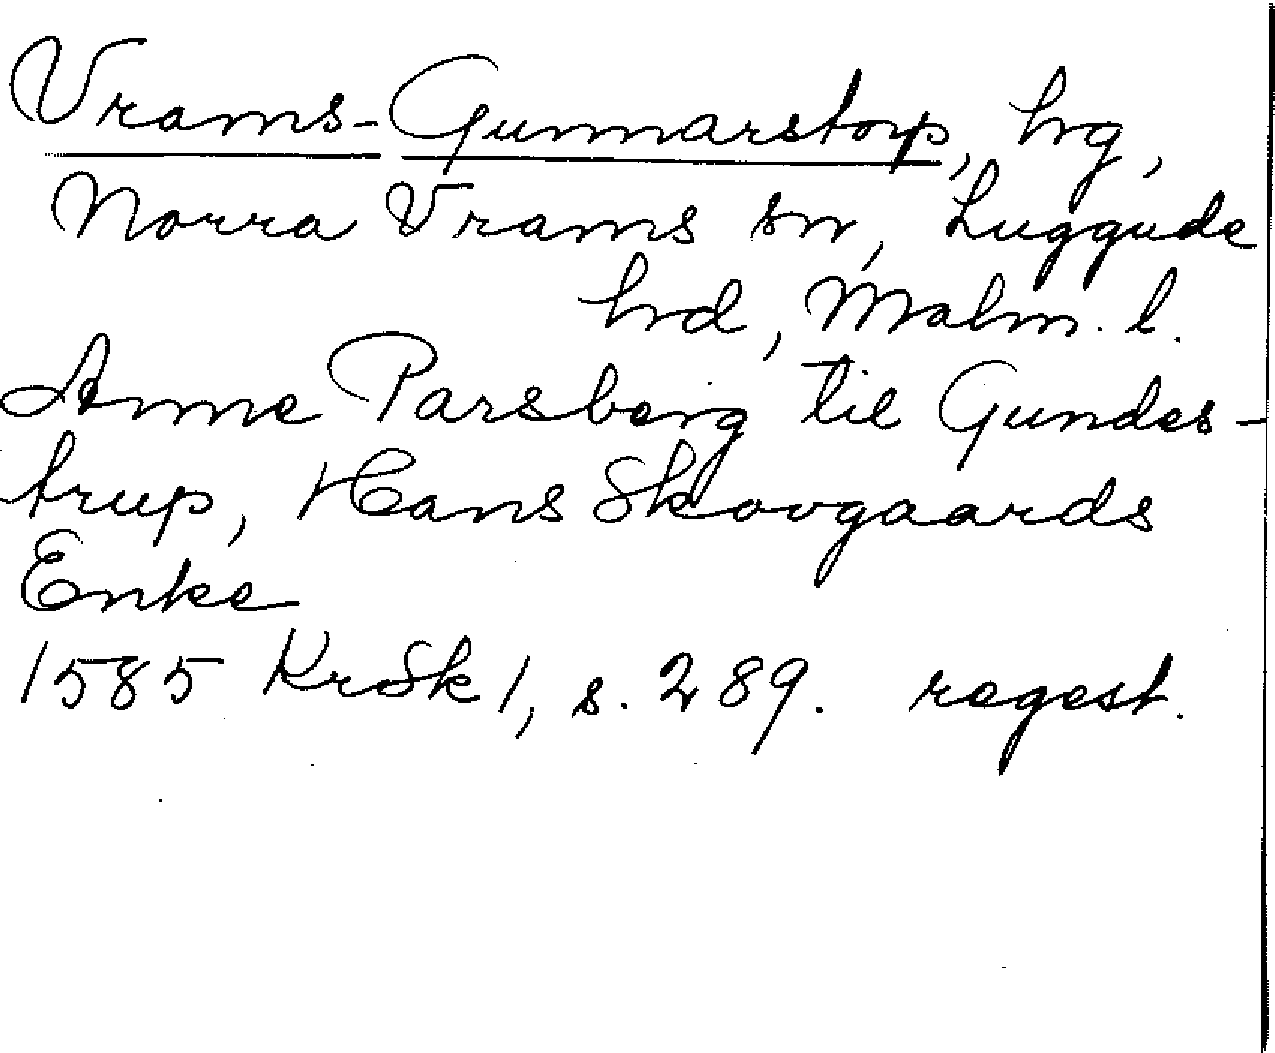 Vrams-Gunnarstorp, hrg,
Norra Vrams sn, Luggude
hrd, Malm. l.
Anne Parsberg til Gundes-
trup, Hans Skovgaards
Enke
1585 KrSk 1, s. 289. regest.